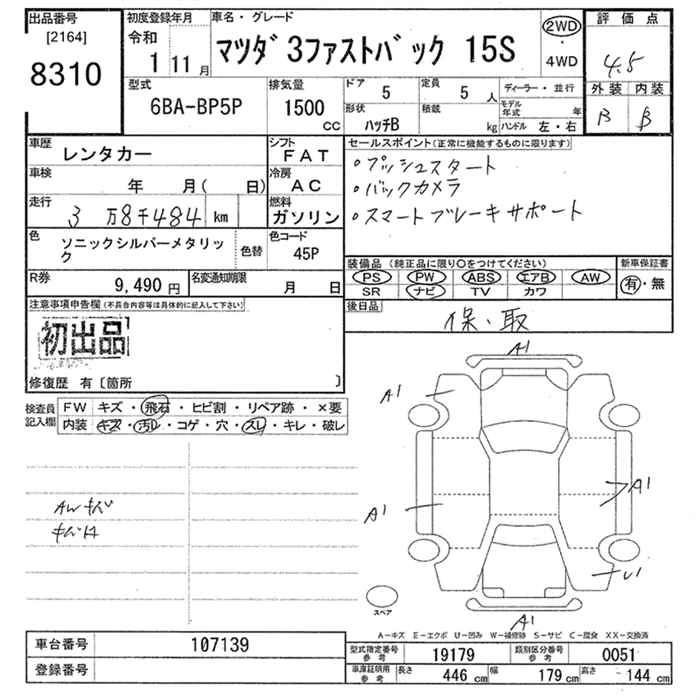 出品番号
[2164]
8310
初度登録年月
令和
1 11 月
車名・グレード
マツダ 3ファストバック 15S
2WD
・
4WD
評価点
4.5
外装 内装
B B
型式
6BA-BP5P
排気量
1500
cc
ドア 5
形状
ハッチB
定員 5 人
積載 kg
ディーラー・並行
モデル年式 年
ハンドル 左・右
車歴
レンタカー
シフト
FAT
車検 年 月( 日)
冷房
AC
走行 3 万8千484 km
燃料
ガソリン
色
ソニックシルバーメタリック
色替
色コード
45P
R券 9,490 円
名変通知期限 月 日
セールスポイント(正常に機能するものに限ります)
・プッシュスタート
・バックカメラ
・スマートブレーキサポート
装備品(純正品に限り○をつけてください)
PS PW ABS エアB AW
SR ナビ TV カワ
新車保証書
有・無
後日品
保・取
注意事項申告欄(不具合内容等は具体的に記入して下さい)
初出品
修復歴 有〔箇所 〕
検査員記入欄
FW キズ・飛石・ヒビ割・リペア跡・×要
内装 キズ・汚レ・コゲ・穴・スレ・キレ・破レ
AWキズ
A1
A1
A1
A1
U1
スペア
A-キズ E-エクボ U-凹み W-補修跡 S-サビ C-腐食 XX-交換済
車台番号 107139
登録番号
型式指定番号参考 19179
類別区分番号参考 0051
車庫証明用参考
長さ 446 cm
幅 179 cm
高さ 144 cm